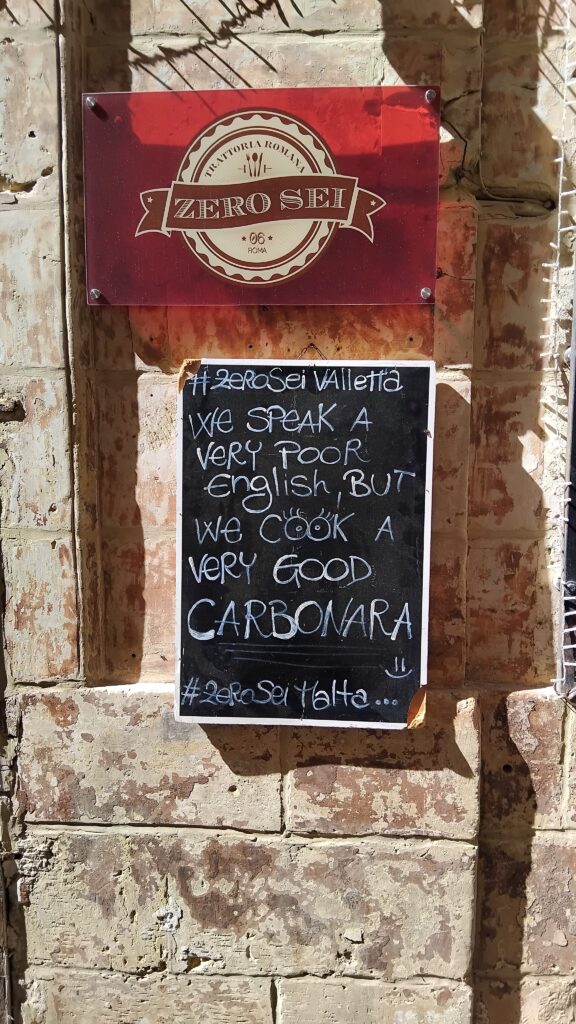 TRATTORIA ROMANA
ZERO SEI
06
ROMA
#ZeroSei Valletta
WE SPEAK A
VERY POOR
English, BUT
WE COOK A
VERY GOOD
CARBONARA
#ZeroSei Malta...